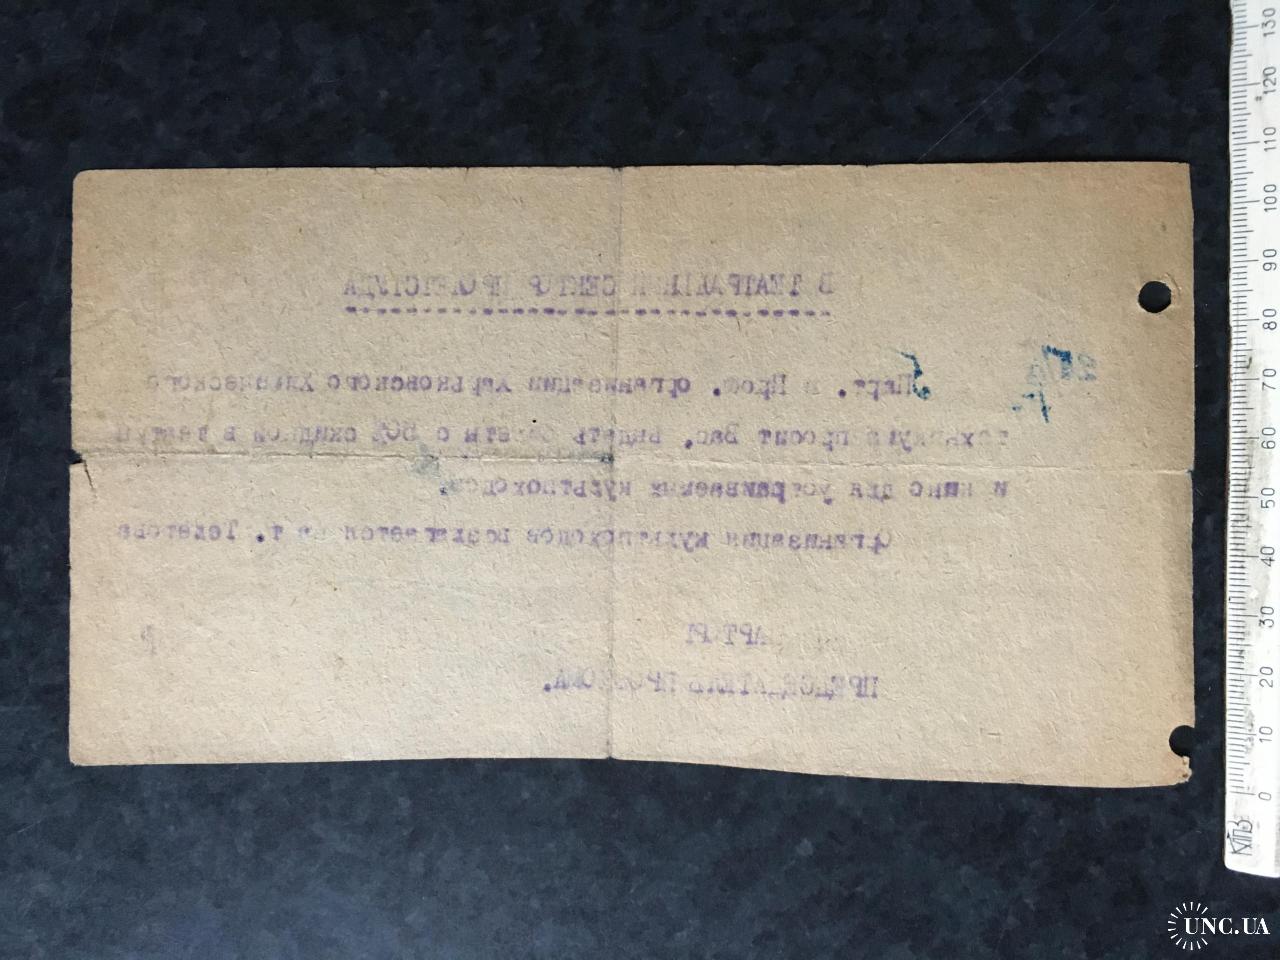 В ТЕАТРАЛЬНЫЙ СЕКТОР ПРОЛЕТСТУДА
Парт. и Проф. организации Харьковского Химического
техникума просит Вас, выдать билеты с 50% скидкой в театры
и кино для устраиваемых культпоходов.
Организация культпоходов возлагается на т. Телегова
ПАРТОРГ
ПРЕДСЕДАТЕЛЬ ПРОФКОМА.
0 10 20 30 40 50 60 70 80 90 100 110 120 130
UNC.UA